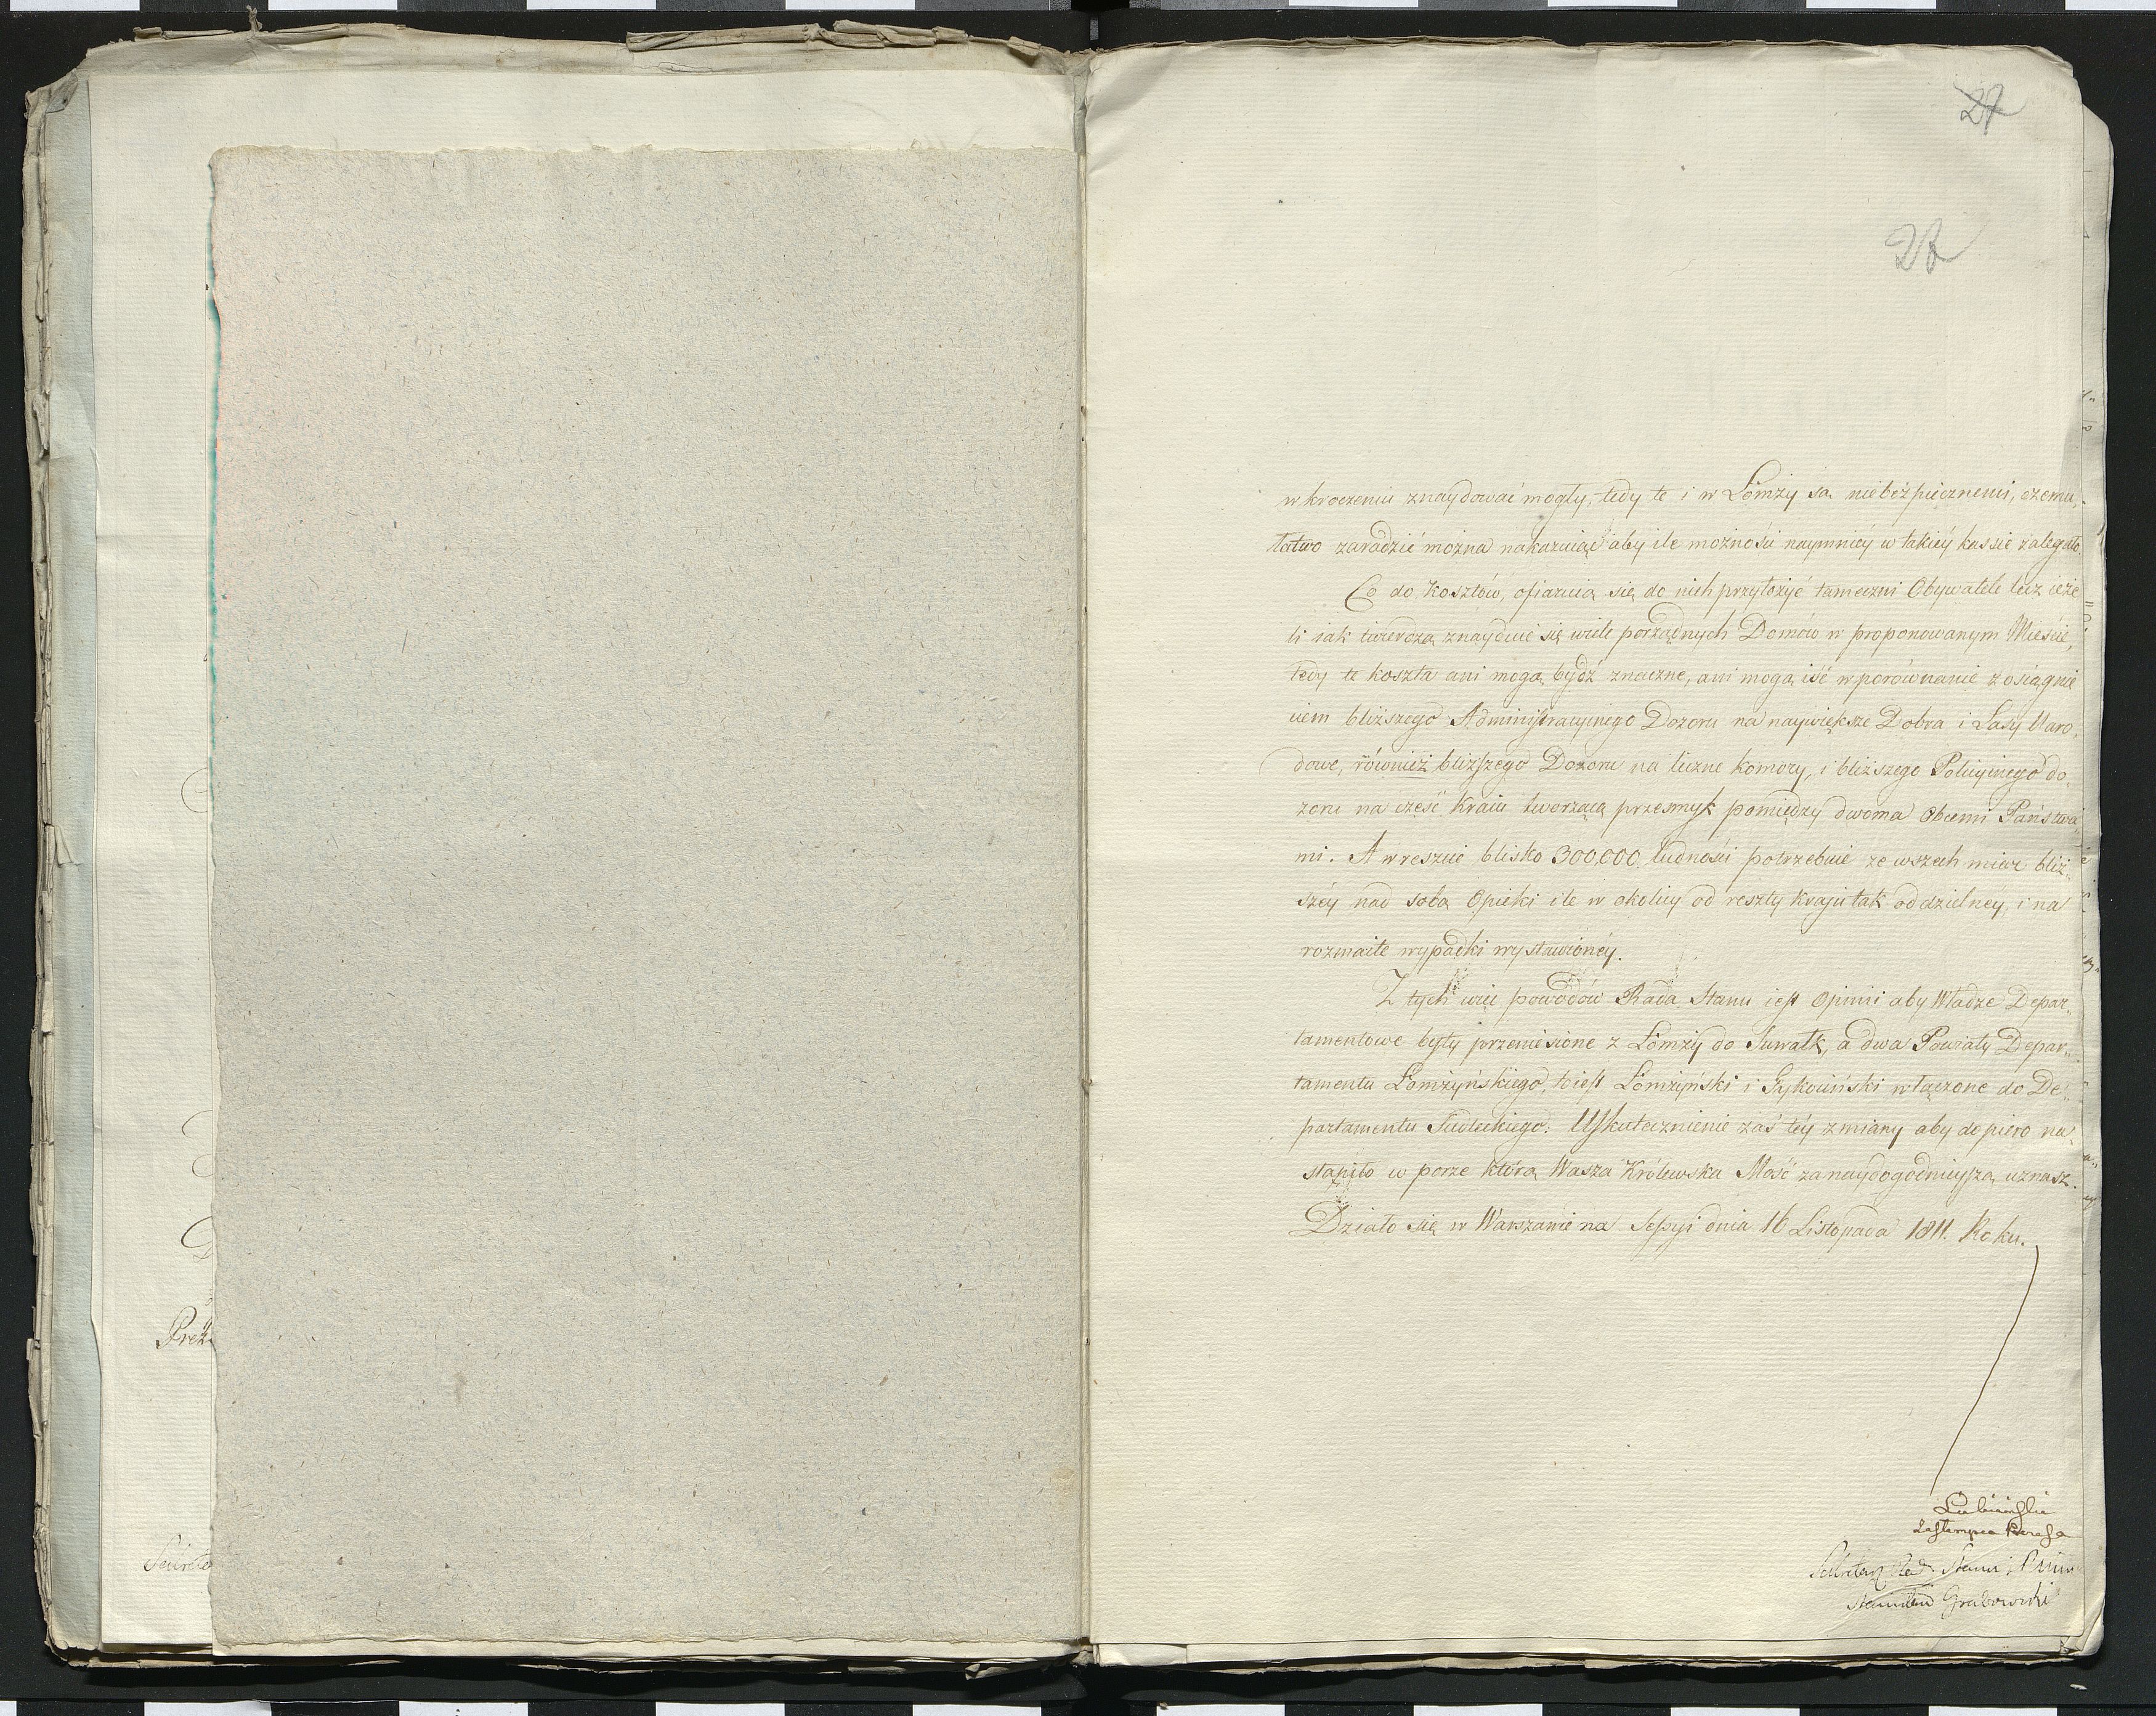 27
28
Prez
w kroczeniu znaydować mogły, tedy te i w Łomży są niebeżpiecznemi, czemu
łatwo zaradzić można nakazuiąc aby ile możności naymniéy w takiéy kassie zaległo.
Co do kosztów, ofiaruią się do nich przyłożyć tameczni Obywatele lecz ieże
li iak twierdzą znayduie się wiele porządnych Domów w proponowanym Mieście,
tedy te koszta ani mogą bydź znaczne, ani mogą iść w porównanie z osiągnie
niem bliższego Administracyinego Dozoru na naywiększe Dobra i Lasy Naro,
dowe, również bliższego Dozoru na liczne Komory, i bliższego Policyinego do,
zoru na część Kraiu tworzącą przesmyk pomiędzy dwoma Obcemi Państwa
mi. A wreszcie blisko 300,000 ludności potrzebuie ze wszech miar bliż„
széy nad sobą Opieki ile w okolicy od reszty kraju tak oddzielnéy, i na
rozmaite wypadki wystawionéy.
Z tych więc powodów Rada Stanu iest Opinii aby Władze Depar„
tamentowe były przeniesione z Łomży do Suwałk, a dwa Powiaty Depar„
tamentu Łomżyńskiego, to iest Łomżyński i Tykociński włączone do De„
partamentu Siedleckiego. Uskutecznienie zaś téy zmiany aby dopiero na„
stąpiło w porze którą Wasza Królewska Mość za naydogodnieyszą uznasz.
Działo się w Warszawie na Sessyi dnia 16 Listopada 1811. Roku.
Łubieński
Zastempca Prezesa
Sekretarz Rad. Stanu i Minis
Stanisław Grabowski